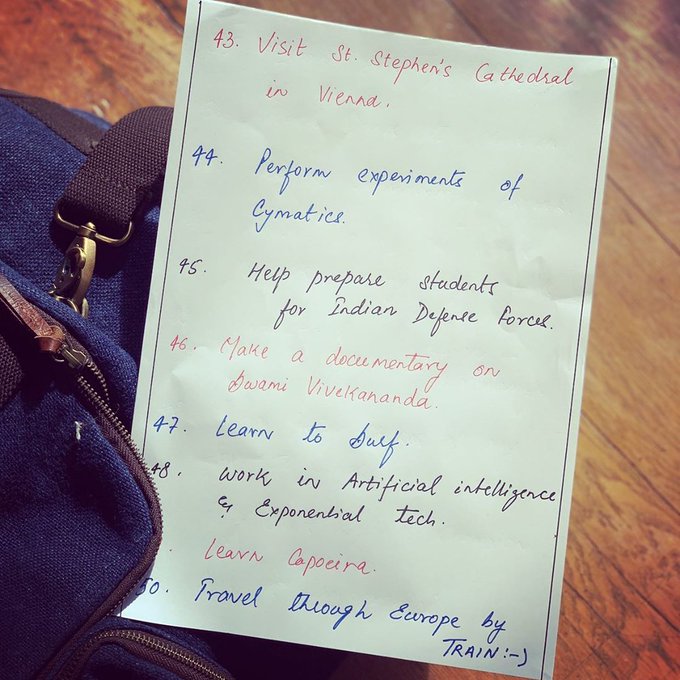 43. Visit St. Stephen's Cathedral
in Vienna.
44. Perform experiments of
Cymatics.
45. Help prepare students
for Indian Defense forces.
46. Make a documentary on
Swami Vivekananda.
47. Learn to Surf.
48. Work in Artificial intelligence
& Exponential tech.
. Learn Capoeira.
50. Travel through Europe by
TRAIN :-)